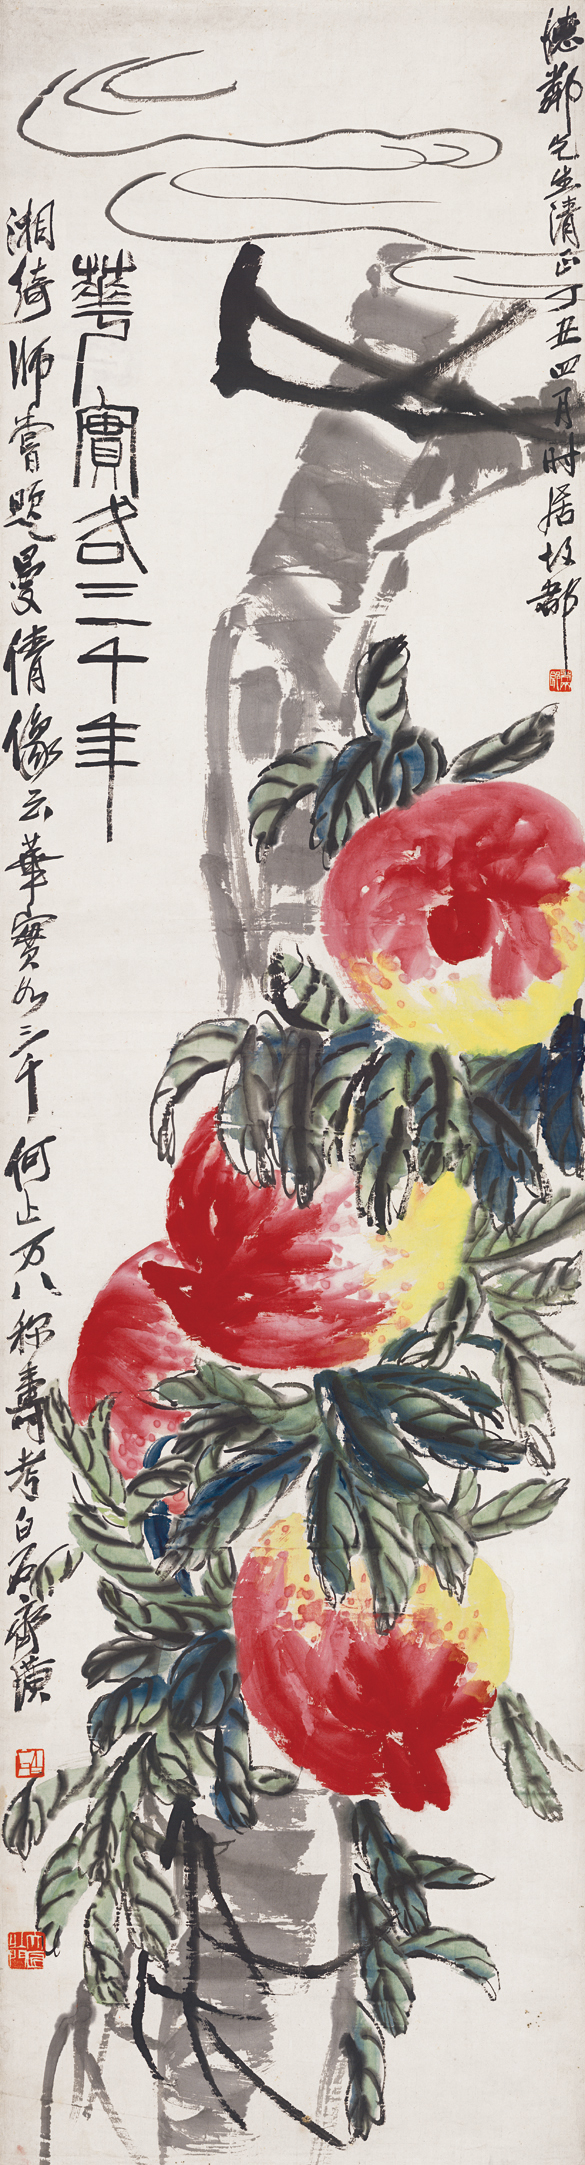 德鄰先生清正丁丑四月时居故都
華實各三千年
湘綺師嘗題曼倩像云華實各三千何止万八称壽考白石齊璜
大匠之門